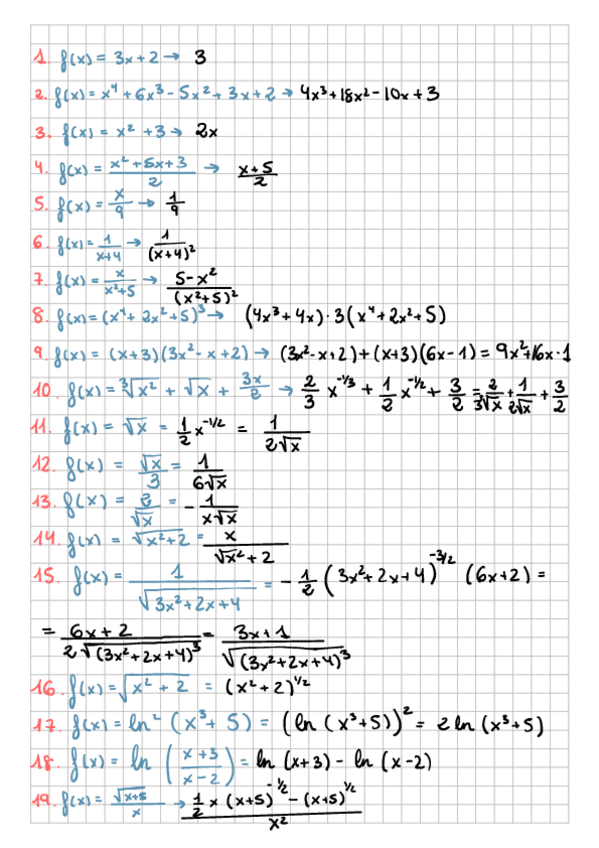 1. f(x) = 3x+2 → 3
2. f(x) = x⁴ + 6x³ - 5x² + 3x + 2 → 4x³+18x²-10x+3
3. f(x) = x² + 3 → 2x
4. f(x) = (x² + 5x + 3)/2 → (x+5)/2
5. f(x) = x/9 → 1/9
6. f(x) = 1/(x+4) → 1/(x+4)²
7. f(x) = x/(x²+5) → (5-x²)/(x²+5)²
8. f(x) = (x⁴ + 2x² + 5)³ → (4x³ + 4x) · 3(x⁴ + 2x² + 5)
9. f(x) = (x+3)(3x² - x + 2) → (3x²-x+2)+(x+3)(6x-1) = 9x²+16x·1
10. f(x) = ∛x² + √x + 3x/2 → 2/3 x^-1/3 + 1/2 x^-1/2 + 3/2 = 2/3∛x + 1/2√x + 3/2
11. f(x) = √x = 1/2 x^-1/2 = 1/2√x
12. f(x) = √x/3 = 1/6√x
13. f(x) = 2/√x = - 1/x√x
14. f(x) = √(x²+2) = x/√x²+2
15. f(x) = 1/√(3x²+2x+4) = - 1/2 (3x²+2x+4)^-3/2 (6x+2) =
= (6x+2)/2√(3x²+2x+4)³ = (3x+1)/√(3x²+2x+4)³
16. f(x) = √(x² + 2) = (x²+2)^1/2
17. f(x) = ln² (x³ + 5) = (ln (x³+5))² = 2 ln (x³+5)
18. f(x) = ln ((x+3)/(x-2)) = ln (x+3) - ln (x-2)
19. f(x) = √(x+5)/x → (1/2 x (x+5)^-1/2 - (x+5)^1/2)/x²